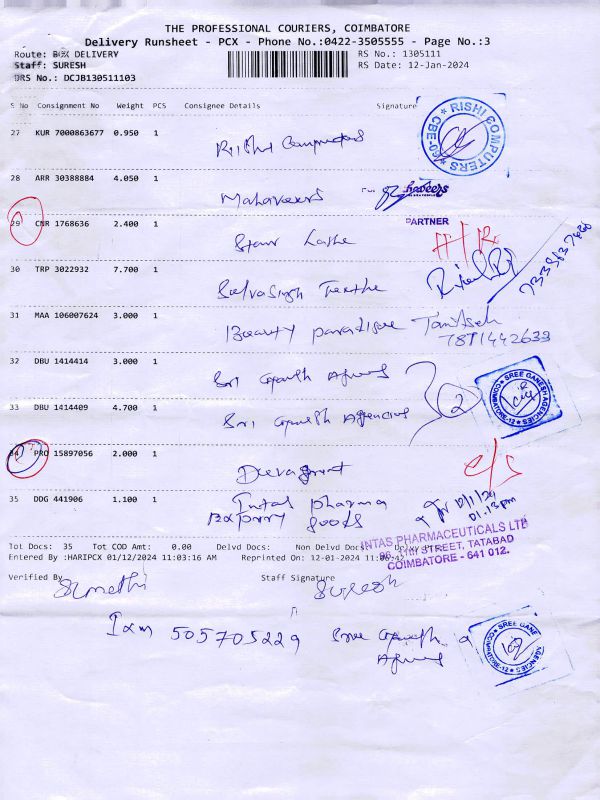 THE PROFESSIONAL COURIERS, COIMBATORE
Delivery Runsheet - PCX - Phone No.:0422-3505555 - Page No.:3
Route: BOX DELIVERY RS No.: 1305111
Staff: SURESH RS Date: 12-Jan-2024
DRS No.: DCJB130511103
S No Consignment No Weight PCS Consignee Details Signature
27 KUR 7000863677 0.950 1
Rishi Computers
RISHI COMPUTERS
CBE-
28 ARR 30388884 4.050 1
Mahaveers
PARTNER
29 CNR 1768636 2.400 1
Star
30 TRP 3022932 7.700 1
Selvasingh
31 MAA 106007624 3.000 1
Beauty paradise
7871442633
32 DBU 1414414 3.000 1
Sri Ganesh
33 DBU 1414409 4.700 1
Sri Ganesh Agencies
2
SREE GANESH AGENCIES
COIMBATORE-12
34 PRO 15897056 2.000 1
35 DDG 441906 1.100 1
Intas pharma
Expiry goods
12/1/24
01.13pm
Tot Docs: 35 Tot COD Amt: 0.00 Delvd Docs: Non Delvd Docs:
Entered By :HARIPCX 01/12/2024 11:03:16 AM Reprinted On: 12-01-2024
INTAS PHARMACEUTICALS LTD
STREET, TATABAD
COIMBATORE - 641 012.
Verified By Staff Signature
Suresh
505705229 Sree Ganesh
SREE GANE
AGENCIES